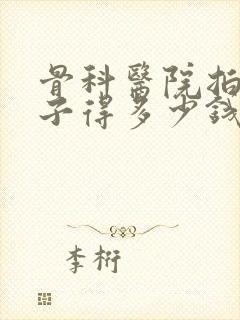 骨科醫院拍
子得多少錢
李桁